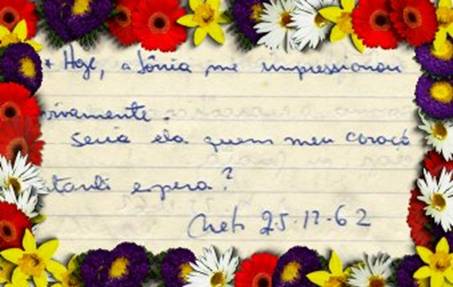 * Hoje, a Sônia me impressionou
vivamente.
Seria ela quem meu coraçã
tanto espera?
25-12-62